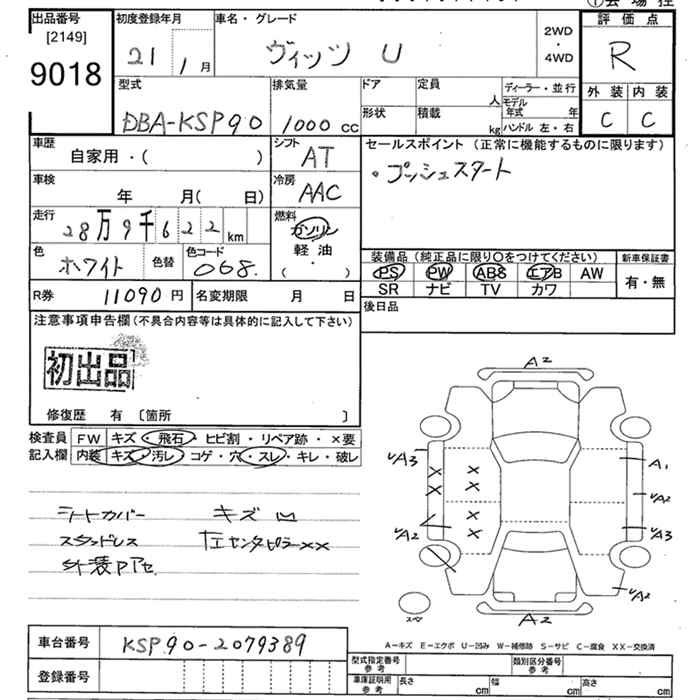 ①会場控
出品番号
[2149]
9018
初度登録年月
21 1月
車名・グレード
ヴィッツ U
2WD
・
4WD
評価点
R
外装 内装
C C
型式
DBA-KSP90
排気量
1000 cc
ドア
形状
定員
人
積載
kg
ディーラー・並行
モデル年式 年
ハンドル 左・右
車歴
自家用・( )
シフト
AT
セールスポイント (正常に機能するものに限ります)
・プッシュスタート
車検
年 月( 日)
冷房
AAC
走行
28万9千622km
燃料
ガソリン
軽油
( ・ )
色
ホワイト
色替
色コード
068.
装備品 (純正品に限り○をつけてください) 新車保証書
PS PW ABS エアB AW
SR ナビ TV カワ
有・無
R券
11090円
名変期限 月 日
後日品
注意事項申告欄 (不具合内容等は具体的に記入して下さい)
初出品
修復歴 有 〔箇所 〕
検査員
記入欄
FW キズ・飛石・ヒビ割・リペア跡・×要
内装 キズ・汚レ・コゲ・穴・スレ・キレ・破レ
シートカバー キズ凹
スタッドレス 左センタピラーxx
外装Pアセ
A2
A3
A1
A2
A2
A3
A2
A2
スペ
A-キズ E-エクボ U-凹み W-補修跡 S-サビ C-腐食 XX-交換済
車台番号
KSP90-2079389
登録番号
型式指定番号
参考
類別区分番号
参考
車庫証明用
参考
長さ cm
幅 cm
高さ cm